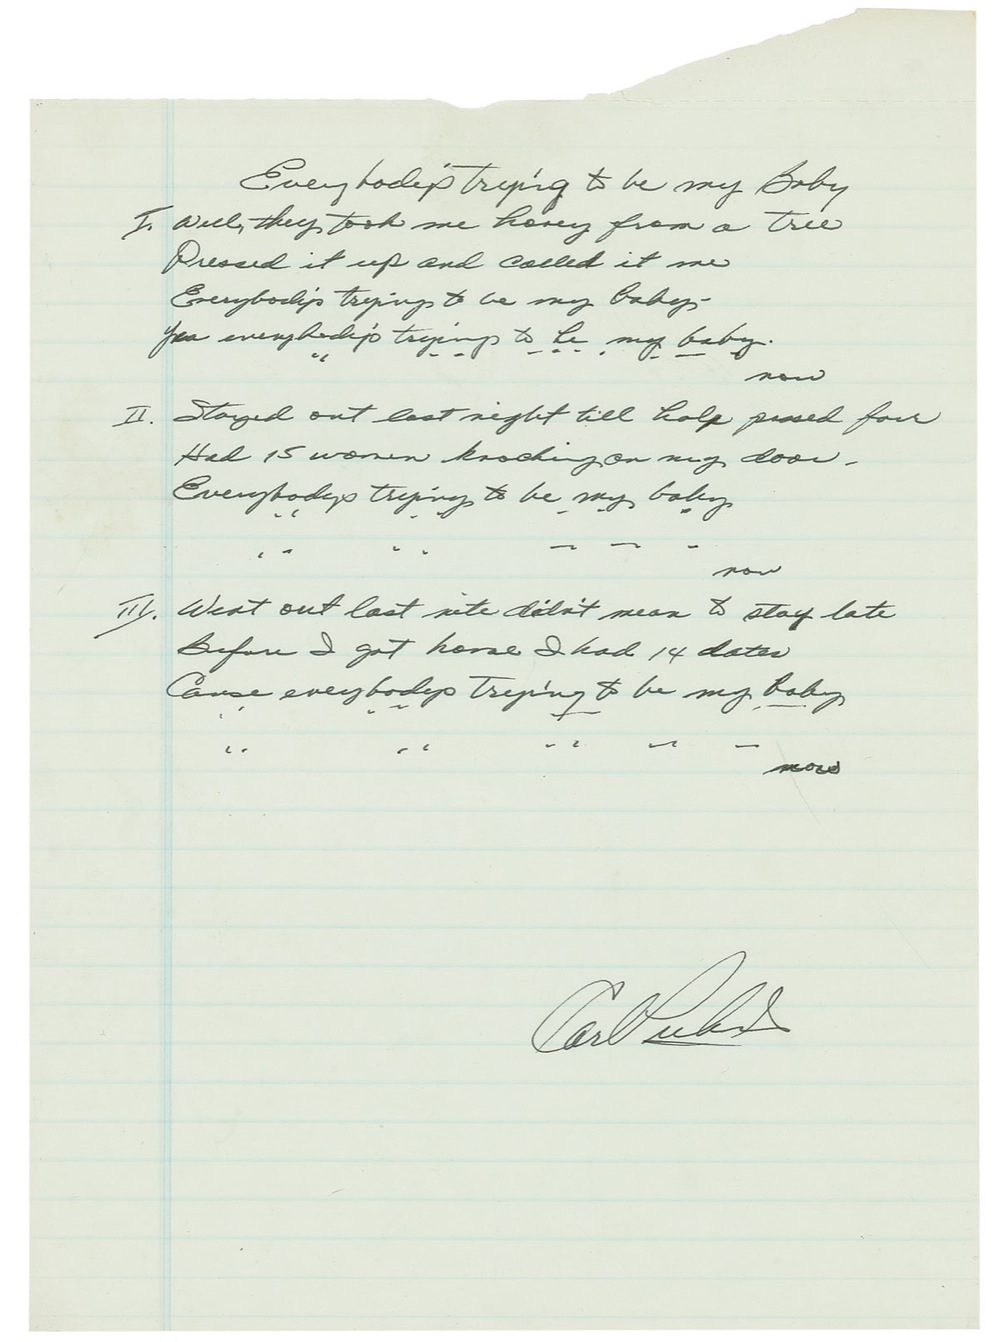 Everybody's trying to be my Baby
I. Well, they took me honey from a tree
Pressed it up and called it me
Everybody's trying to be my baby-
Yea everybody's trying to be my baby.
" - - - - - - - - -
now
II. Stayed out last night till half passed four
Had 15 women knocking on my door -
Everybodys trying to be my baby
" " - - "
" " - - -
now
III. Went out last nite didn't mean to stay late
Before I got home I had 14 dates
Cause everybodys Trying to be my baby
" " "
" " " - -
now
Carl Perkins